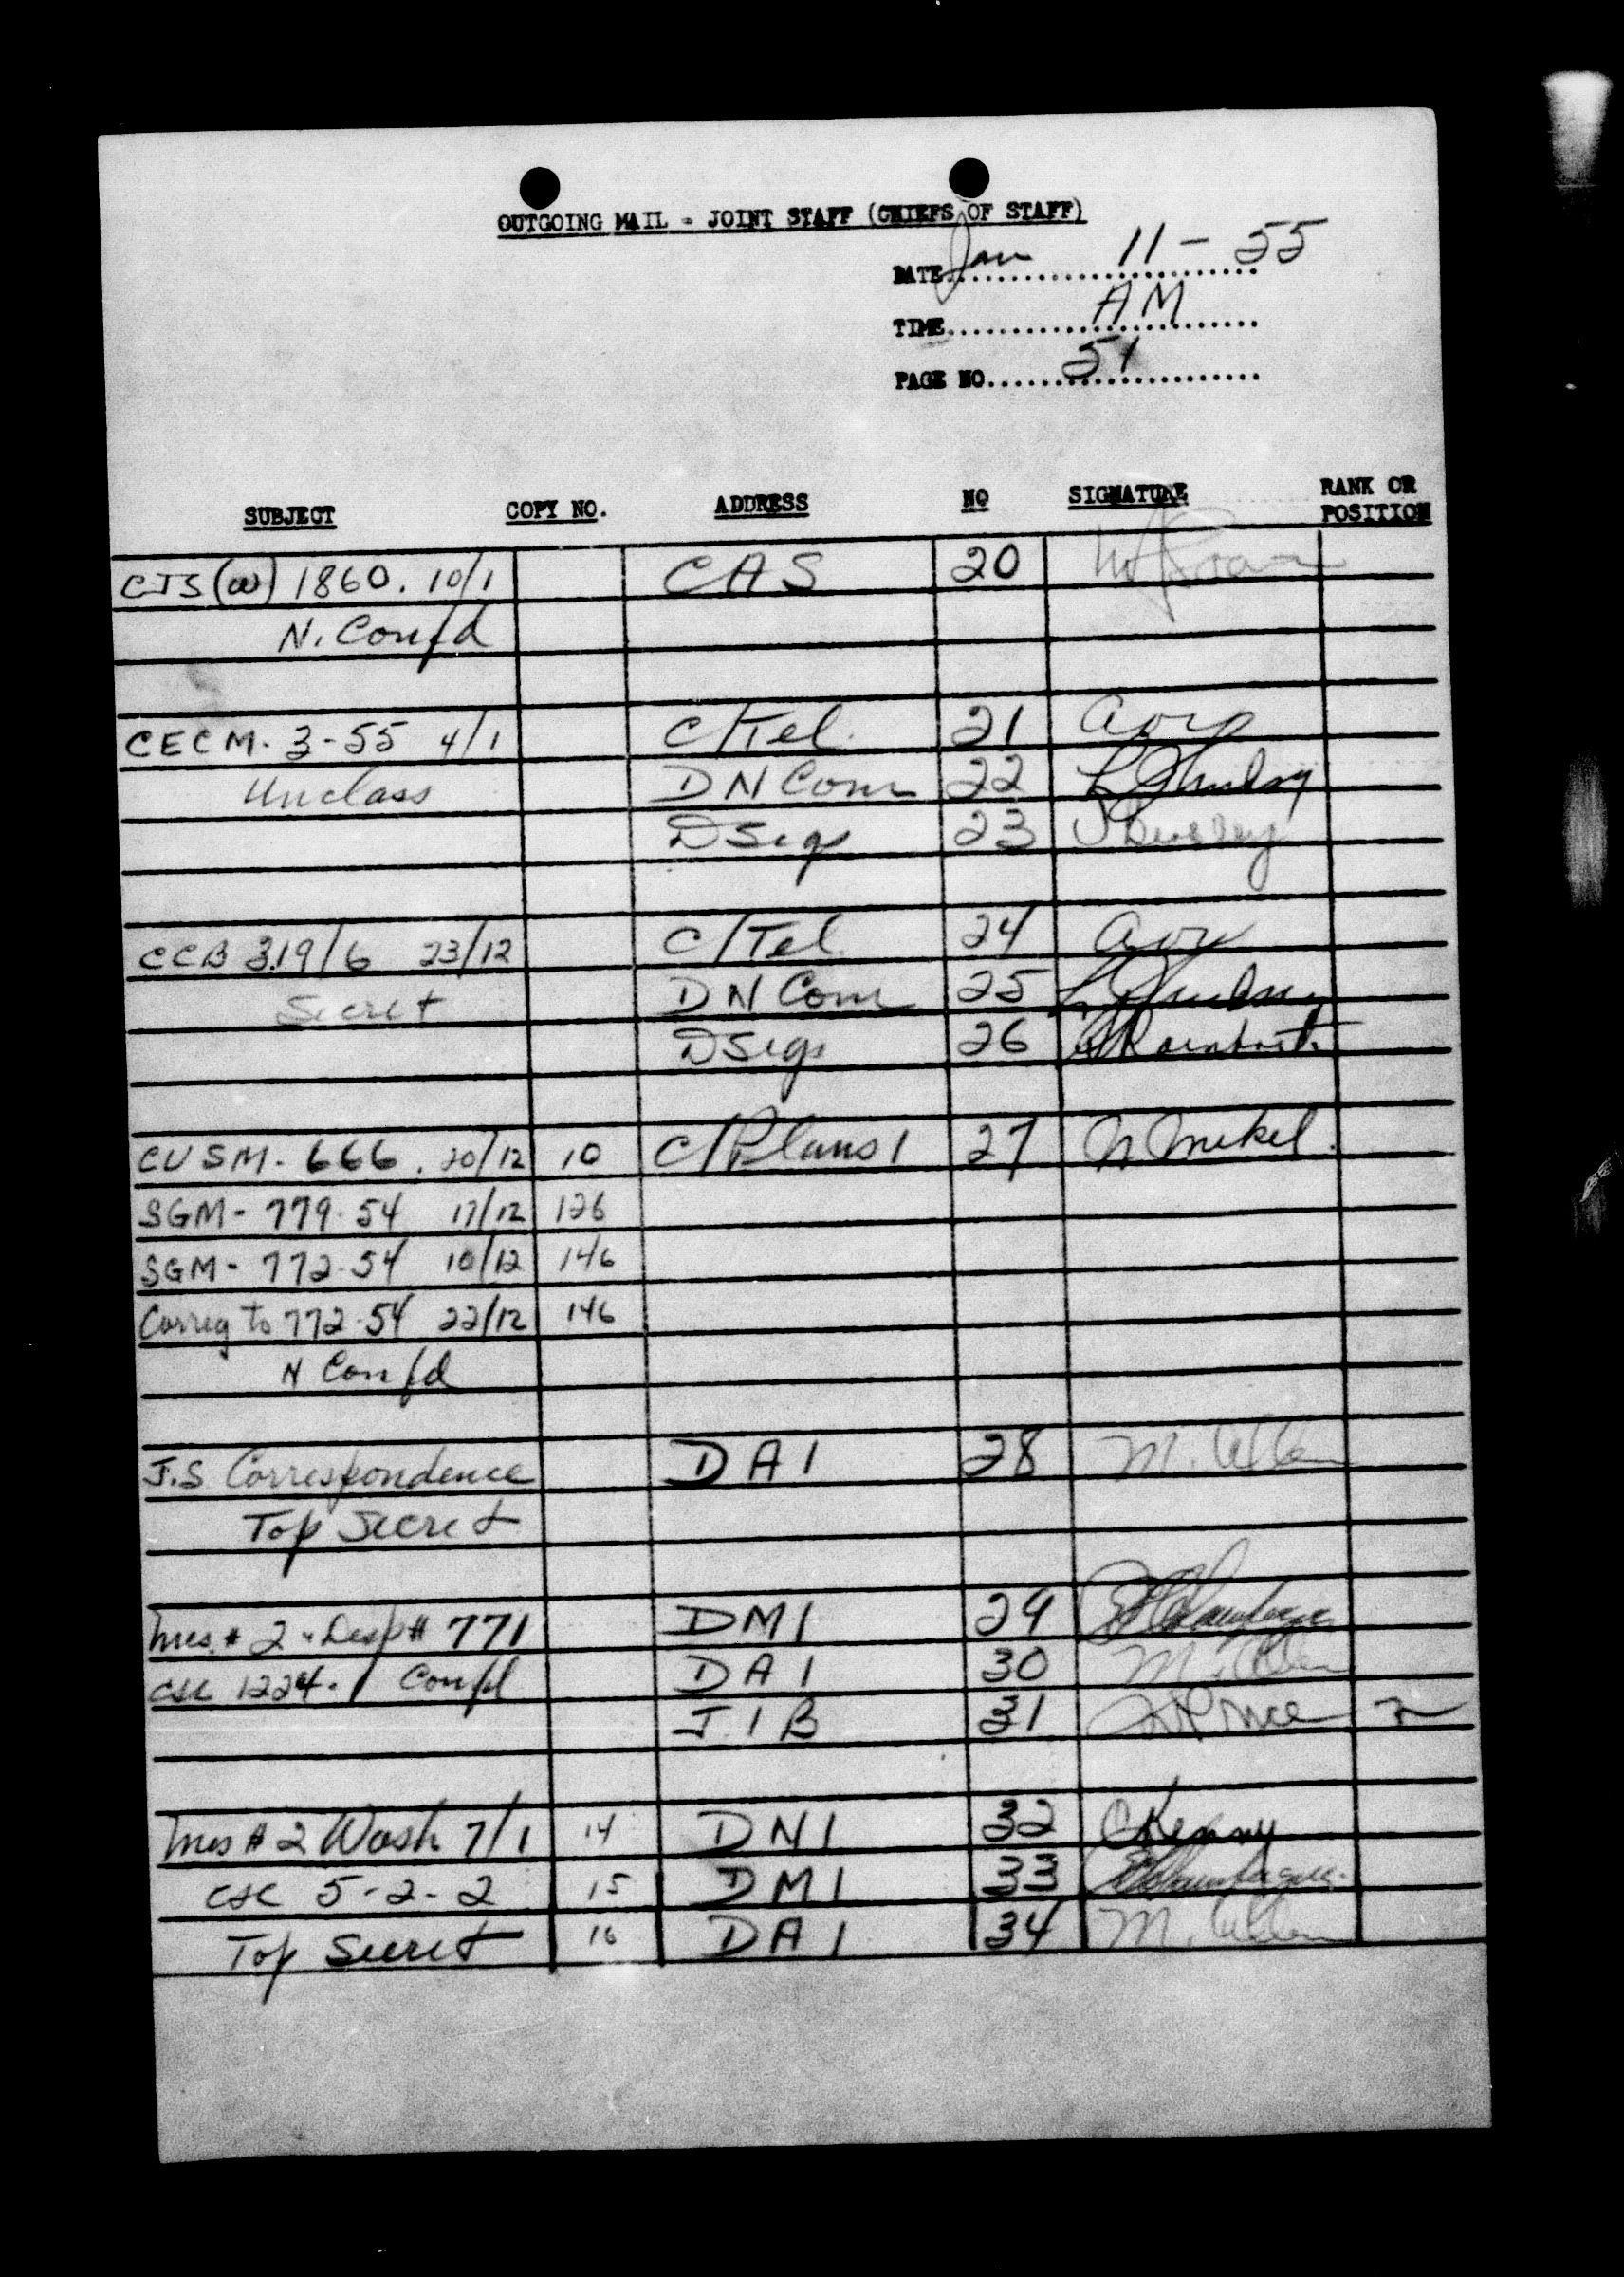 OUTGOING MAIL - JOINT STAFF (CHIEFS OF STAFF)
DATE Jan 11 - 55
TIME AM
PAGE NO. 51
SUBJECT COPY NO. ADDRESS NO SIGNATURE RANK OR POSITION
CJS (W) 1860. 10/1 CAS 20
N. Confd
CECM. 3-55 4/1 C/Tel. 21
Unclass DN Com 22
DSigs 23
CCB 319/6 23/12 C/Tel. 24
Secret DN Com 25
DSigs 26
CUSM- 666. 20/12 10 C/Plans 1 27
SGM- 779-54 17/12 126
SGM- 772-54 10/12 146
Correg to 772-54 22/12 146
N Confd
J.S Correspondence DAI 28 M. Allen
Top Secret
Mes. # 2 - Desp # 771 DMI 29
CSC 1224.1 Confd DAI 30 M. Allen
JIB 31
Mes # 2 Wash 7/1 14 DNI 32 Kenny
CSC 5-2-2 15 DMI 33
Top Secret 16 DAI 34 M. Allen